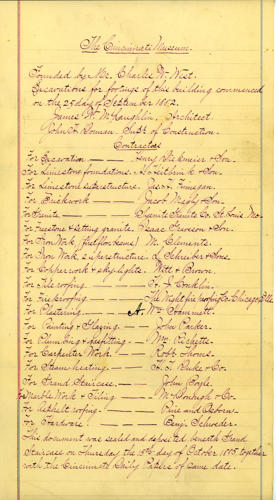 The Cincinnati Museum.
Founded by Mr. Charles W. West.
Excavations for footings of this building commenced
on the 2d day of September 1882.
James W. McLaughlin, Architect.
John H. Supt. of Construction.
Contractors
For Excavation — Henry & Son.
For Limestone foundations.
For Limestone superstructure — Jas. Finnegan.
For Brickwork — Jacob & Son.
For Granite — Granite Co. St Louis Mo.
For Freestone & setting granite. Isaac Graveson & Son.
For Iron Work, M. Clements.
For Iron Work superstructure. L. Schreiber & Sons.
For Copper work & sky-lights. Witt & Brown.
For Tile roofing — Conklin.
For Fireproofing — The Wight fireproofing Co Chicago Ills
For Plastering — Wm
For Painting & Glazing. — John Parker.
For Plumbing & gasfitting — Wm Ricketts.
For Carpenter Work — Robt
For Steam heating — & Co.
For Grand Staircase — John
For Marble Work & Tiling — & Co.
For Asphalt roofing — and Osborn.
For Hardware — Benj.
This document was sealed and deposited beneath Grand
Staircase on Thursday the day of October 1885 together
with the Cincinnati Daily Papers of same date.